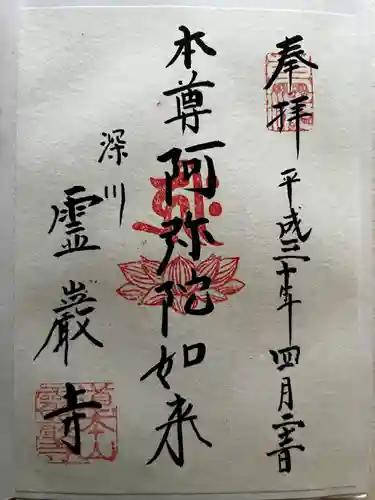 奉拝
平成三十年四月二十五日
本尊阿弥陀如来
深川
霊巌寺